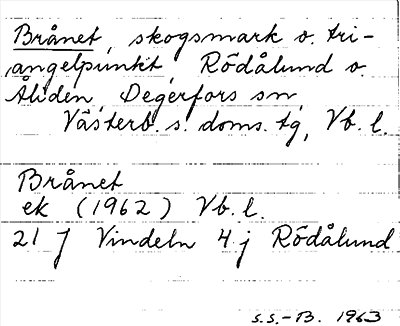 Brånet, skogsmark o. tri-
angelpunkt, Rödålund o.
Åliden, Degerfors sn,
Västerb. s. doms. tg, Vb. l.
Brånet
ek (1962) Vb. l.
21 J Vindeln 4 j Rödålund
s.s.-B. 1963